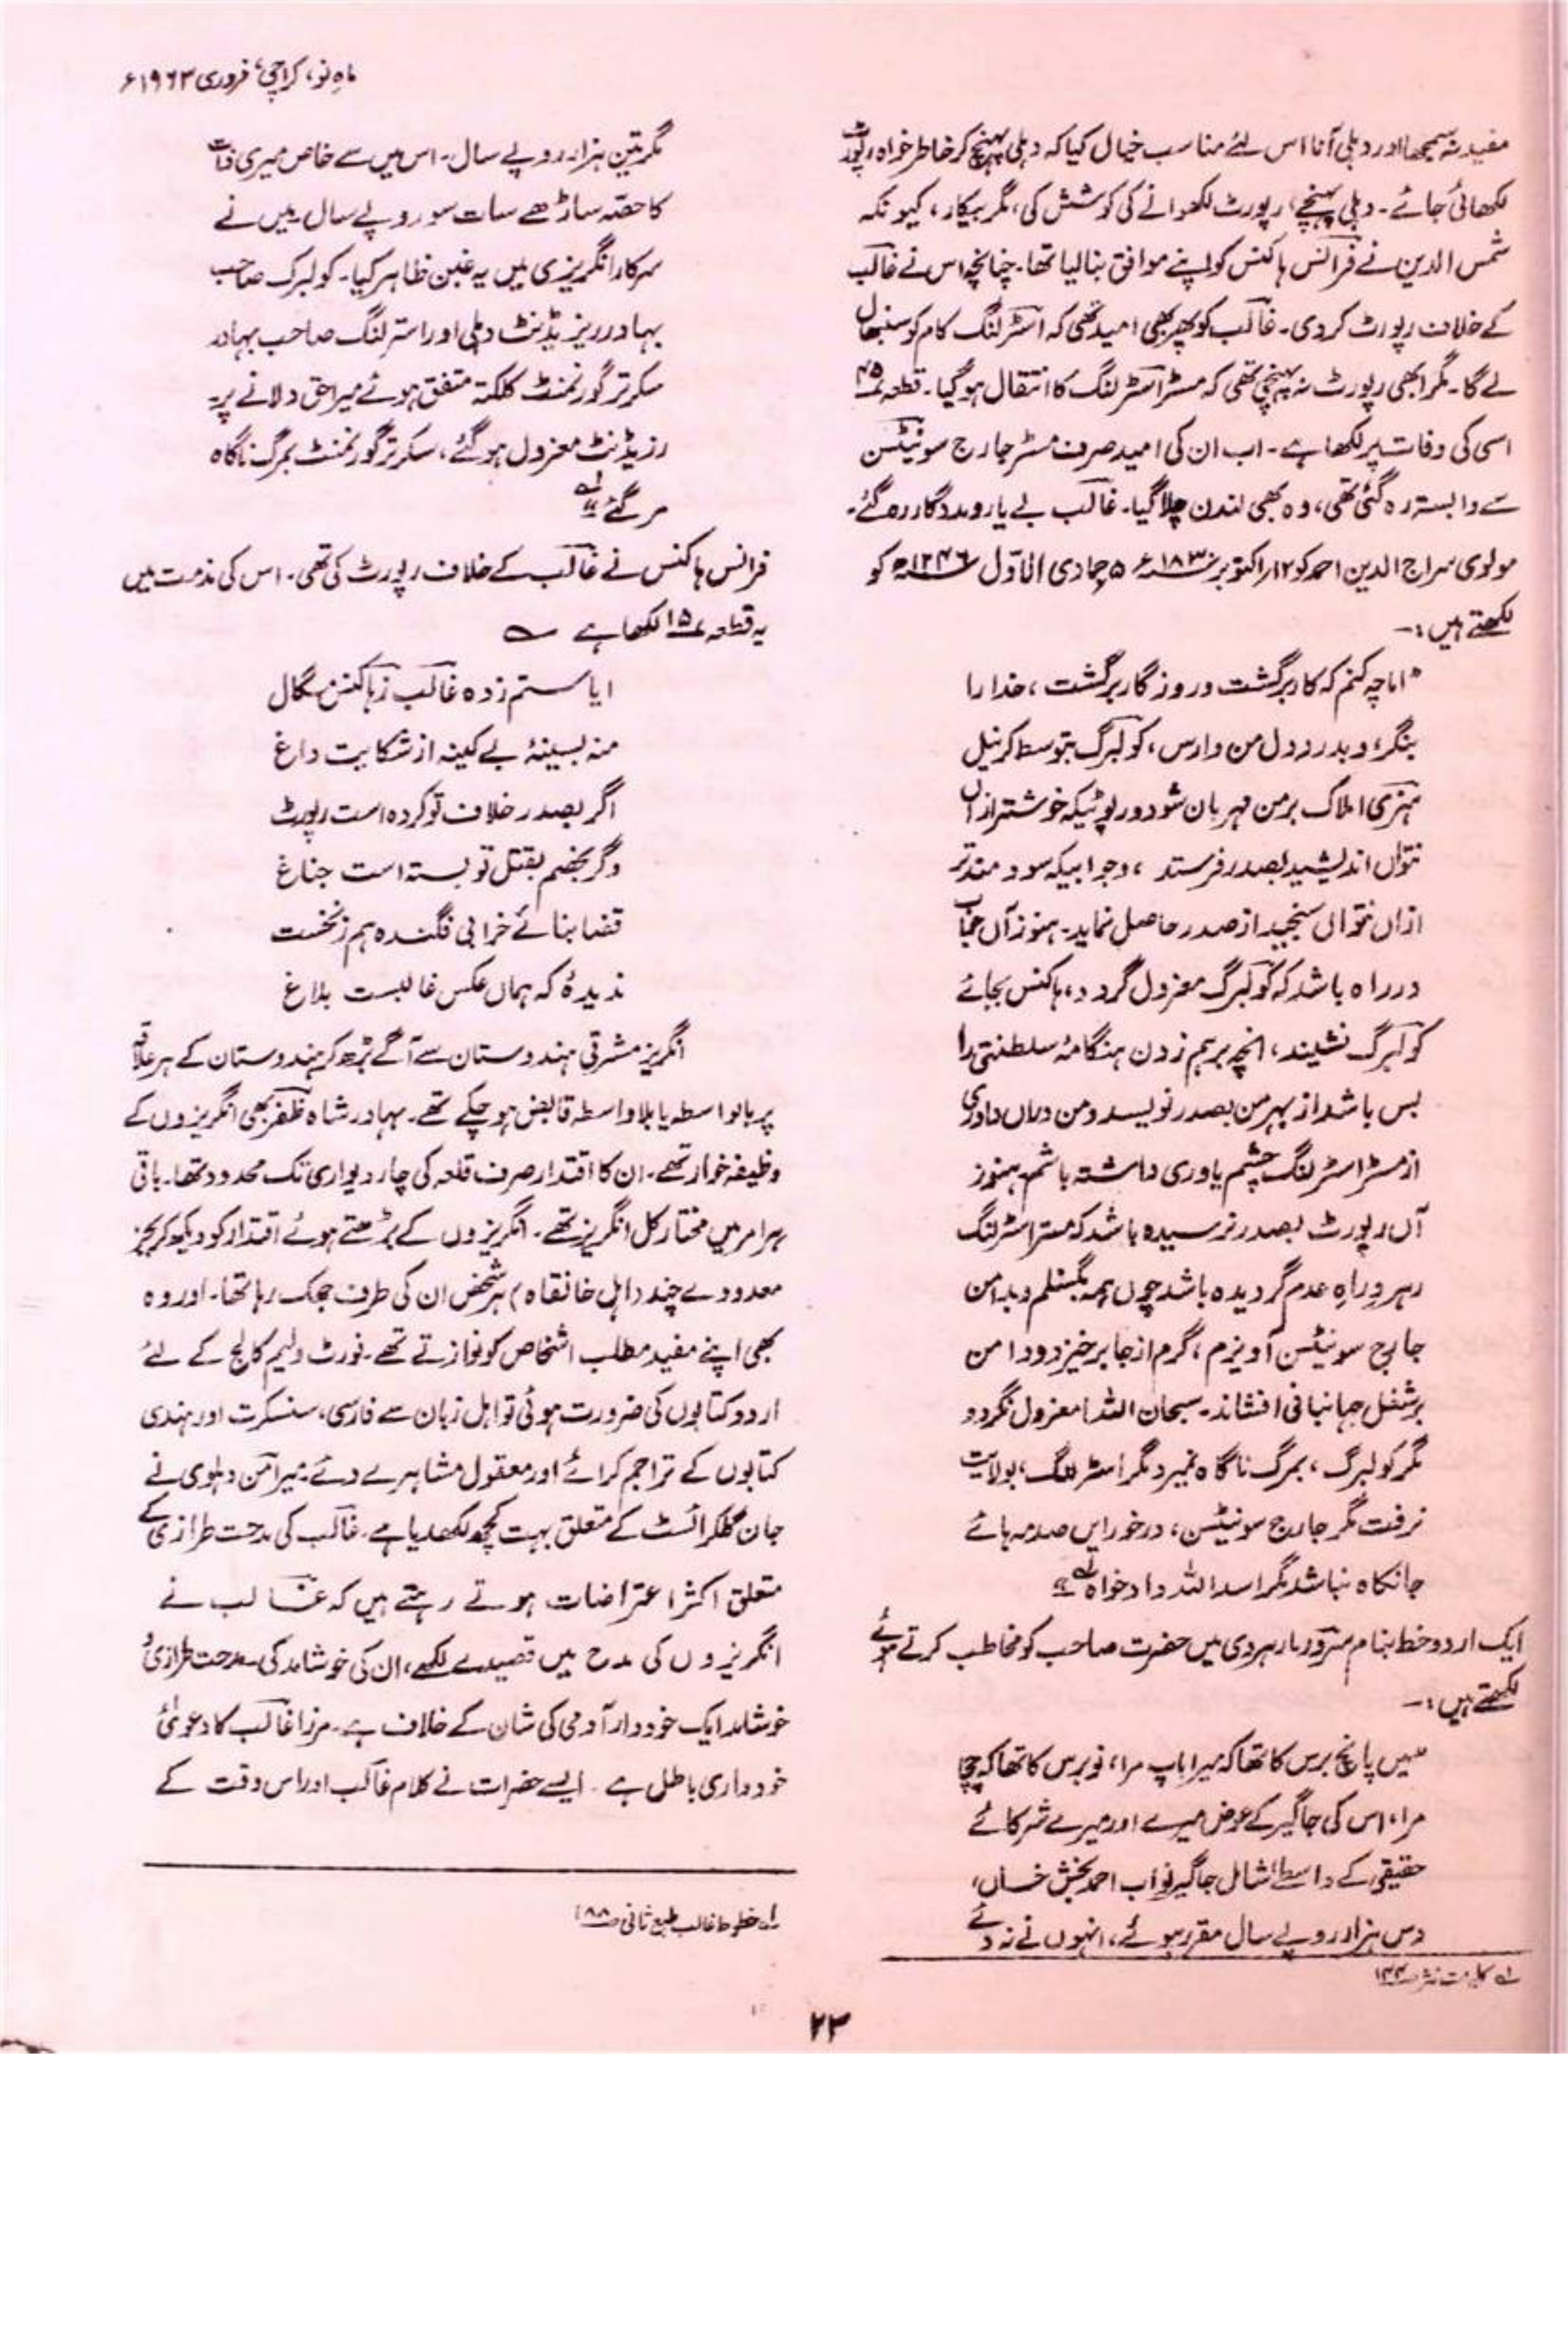 ماہِ نو، کراچی، فروری ۱۹۶۳ء
مفید نہ سمجھا اور دہلی آنا اس لئے مناسب خیال کیا کہ دہلی پہنچ کر خاطر خواہ رپورٹ
لکھائی جائے۔ دہلی پہنچے، رپورٹ لکھوانے کی کوشش کی، مگر بیکار، کیونکہ
شمس الدین نے فرانس ہاکنس کو اپنے موافق بنا لیا تھا۔ چنانچہ اس نے غالب
کے خلاف رپورٹ کر دی۔ غالب کو پھر بھی امید تھی کہ اسٹرلنگ کام کو سنبھال
لے گا۔ مگر ابھی رپورٹ نہ پہنچی تھی کہ مسٹر اسٹرلنگ کا انتقال ہو گیا۔ قطعہ ۴۵
اسی کی وفات پر لکھا ہے۔ اب ان کی امید صرف مسٹر جارج سوئنٹن
سے وابستہ رہ گئی تھی، وہ بھی لندن چلا گیا۔ غالب بے یار و مددگار رہ گئے۔
مولوی سراج الدین احمد کو ۱۲؍ اکتوبر ۱۸۳۰ء ۵ جمادی الاوّل ۱۲۴۶ھ کو
لکھتے ہیں :۔
"اما چہ کنم کہ کار برگشت و روزگار برگشت، خدا را
بنگر، و بدرد دل من وارس، کولبرگ بتوسط کرنیل
ہنری املاک بر من مہربان شود و رپوٹیکہ خوشتر ازاں
نتواں اندیشید بصدر فرستد، و جوابیکہ سود مندتر
ازاں نتواں سنجید از صدر حاصل نماید۔ ہنوز آں جناب
در راہ باشد کہ کولبرگ معزول گردد، ہاکنس بجائے
کولبرگ نشیند، انچہ بر ہم زدن ہنگامۂ سلطنتی را
بس باشد از بہر من بصدر نویسد و من دراں داوری
از مسٹر اسٹرلنگ چشم یاوری داشتہ باشم۔ ہنوز
آں رپورٹ بصدر نرسیدہ باشد کہ مستر اسٹرلنگ
رہروِ راہِ عدم گردیدہ باشد چوں ہمہ بگسلم و بدامن
جارج سوئنٹن آویزم، گرم از جا برخیزد و دامن
بر شغل جہانبانی افشاند۔ سبحان اللہ! معزول نگردد
مگر کولبرگ، بمرگ ناگاہ نمیرد مگر اسٹرلنگ، بولایت
نرفت مگر جارج سوئنٹن، درخور ایں صدمہ ہائے
جانکاہ نباشد مگر اسد اللہ داد خواہ" لہ
ایک اردو خط بنام سرور مارہروی میں حضرت صاحب کو مخاطب کرتے ہوئے
لکھتے ہیں :۔
"میں پانچ برس کا تھا کہ میرا باپ مرا، نو برس کا تھا کہ چچا
مرا، اس کی جاگیر کے عوض میرے اور میرے شرکائے
حقیقی کے واسطے، شامل جاگیر نواب احمد بخش خاں،
دس ہزار روپے سال مقرر ہوئے، انہوں نے نہ دئے
لہ کلیات نثر ص ۱۴۴
مگر تین ہزار روپے سال۔ اس میں سے خاص میری ذات
کا حصّہ ساڑھے سات سو روپے سال۔ میں نے
سرکار انگریزی میں یہ غبن ظاہر کیا۔ کولبرک صاحب
بہادر ریزیڈنٹ دہلی اور استرلنگ صاحب بہادر
سکرتر گورنمنٹ کلکتہ متفق ہوئے میرا حق دلانے پر۔
رزیڈنٹ معزول ہو گئے، سکرتر گورنمنٹ بمرگ ناگاہ
مر گئے" لہ
فرانس ہاکنس نے غالب کے خلاف رپورٹ کی تھی۔ اس کی مذمت میں
یہ قطعہ ۱۵ لکھا ہے ؎
ایا ستم زدہ غالب ز ہاکنس مسگال
منہ بسینۂ بے کینہ از شکایت داغ
اگر بصدر خلاف تو کردہ است رپورٹ
وگر بخصم بقتل تو بستہ است جناغ
قضا بنائے خرابی فگندہ ہم ز نخست
ندیدۂ کہ ہماں عکس غالبست بلاغ
انگریز مشرقی ہندوستان سے آگے بڑھ کر ہندوستان کے ہر علاقہ
پر بالواسطہ یا بلاواسطہ قابض ہو چکے تھے۔ بہادر شاہ ظفر بھی انگریزوں کے
وظیفہ خوار تھے۔ ان کا اقتدار صرف قلعہ کی چار دیواری تک محدود تھا۔ باقی
ہر امر میں مختار کل انگریز تھے۔ انگریزوں کے بڑھتے ہوئے اقتدار کو دیکھ کر بجز
معدودے چند (اہل خانقاہ) ہر شخص ان کی طرف جھک رہا تھا۔ اور وہ
بھی اپنے مفید مطلب اشخاص کو نوازتے تھے۔ فورٹ ولیم کالج کے لئے
اردو کتابوں کی ضرورت ہوئی تو اہل زبان سے فارسی، سنسکرت اور ہندی
کتابوں کے تراجم کرائے اور معقول مشاہرے دئے۔ میر امن دہلوی نے
جان گلکرائسٹ کے متعلق بہت کچھ لکھدیا ہے۔ غالب کی مدحت طرازی کے
متعلق اکثر اعتراضات ہوتے رہتے ہیں کہ غالب نے
انگریزوں کی مدح میں قصیدے لکھے، ان کی خوشامد کی۔ مدحت طرازی و
خوشامد ایک خوددار آدمی کی شان کے خلاف ہے۔ مرزا غالب کا دعویٰ
خودداری باطل ہے۔ ایسے حضرات نے کلام غالب اور اس وقت کے
لہ خطوط غالب طبع ثانی ص ۸۸
۲۳